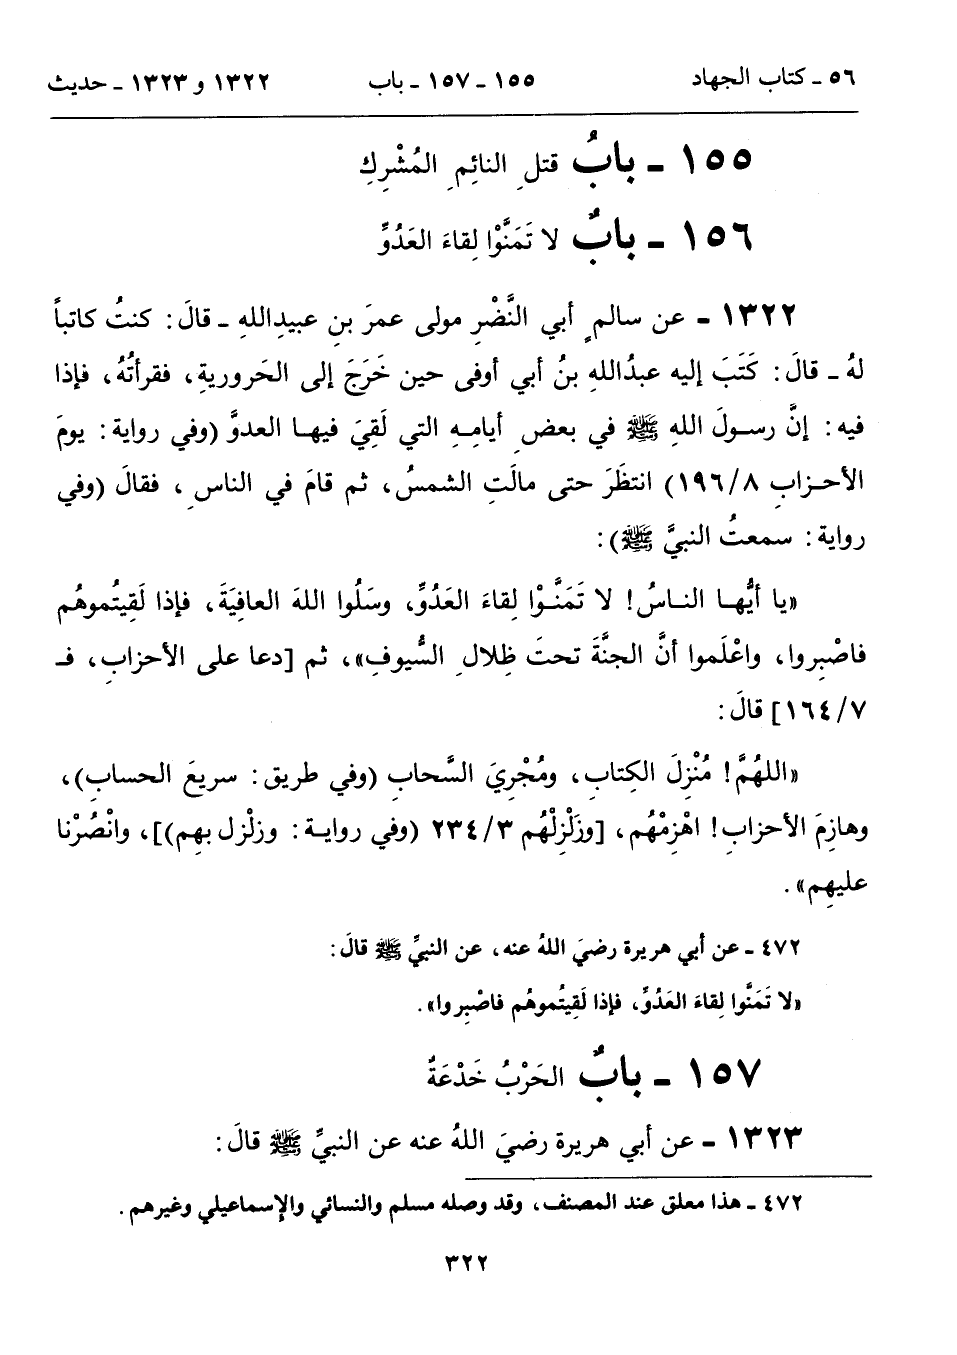 ٥٦ ـ كتاب الجهاد ١٥٥ ـ ١٥٧ ـ باب ١٣٢٢ و ١٣٢٣ ـ حديث
١٥٥ ـ بابُ قتلِ النائِمِ المُشْرِكِ
١٥٦ ـ بابٌ لا تَمَنَّوْا لِقاءَ العَدُوِّ
١٣٢٢ ـ عن سالمٍ أبي النَّضْرِ مولى عمرَ بنِ عبيدِاللهِ ـ قالَ: كنتُ كاتباً
لهُ ـ قالَ: كَتَبَ إليه عبدُاللهِ بنُ أبي أوفى حين خَرَجَ إلى الحَروريةِ، فقرأتُهُ، فإذا
فيه: إنَّ رسولَ اللهِ ﷺ في بعضِ أيامِهِ التي لَقِيَ فيها العدوَّ (وفي رواية: يومَ
الأحزابِ ٨/١٩٦) انتظَرَ حتى مالَتِ الشمسُ، ثم قامَ في الناسِ، فقالَ (وفي
رواية: سمعتُ النبيَّ ﷺ):
«يا أيُّها الناسُ! لا تَمَنَّوْا لِقاءَ العَدُوِّ، وسَلُوا اللهَ العافِيَةَ، فإذا لَقِيتُموهُم
فاصْبِروا، واعْلَموا أنَّ الجنَّةَ تحتَ ظِلالِ السُّيوفِ»، ثم [دعا على الأحزابِ، فـ
٧/١٦٤] قالَ:
«اللهُمَّ! مُنْزِلَ الكِتابِ، ومُجْرِيَ السَّحابِ (وفي طريق: سريعَ الحسابِ)،
وهازِمَ الأحزابِ! اهْزِمْهُم، [وزَلْزِلْهُم ٣/٢٣٤ (وفي رواية: وزلْزل بهِم)]، وانْصُرْنا
عليهِم».
٤٧٢ ـ عن أبي هريرة رضيَ اللهُ عنه، عن النبيِّ ﷺ قالَ:
«لا تَمَنَّوا لِقاءَ العَدُوِّ، فإذا لَقِيتُموهُم فاصْبِروا».
١٥٧ ـ بابٌ الحَرْبُ خَدْعَةٌ
١٣٢٣ ـ عن أبي هريرة رضيَ اللهُ عنه عن النبيِّ ﷺ قالَ:
٤٧٢ ـ هذا معلق عند المصنف، وقد وصله مسلم والنسائي والإسماعيلي وغيرهم.
٣٢٢